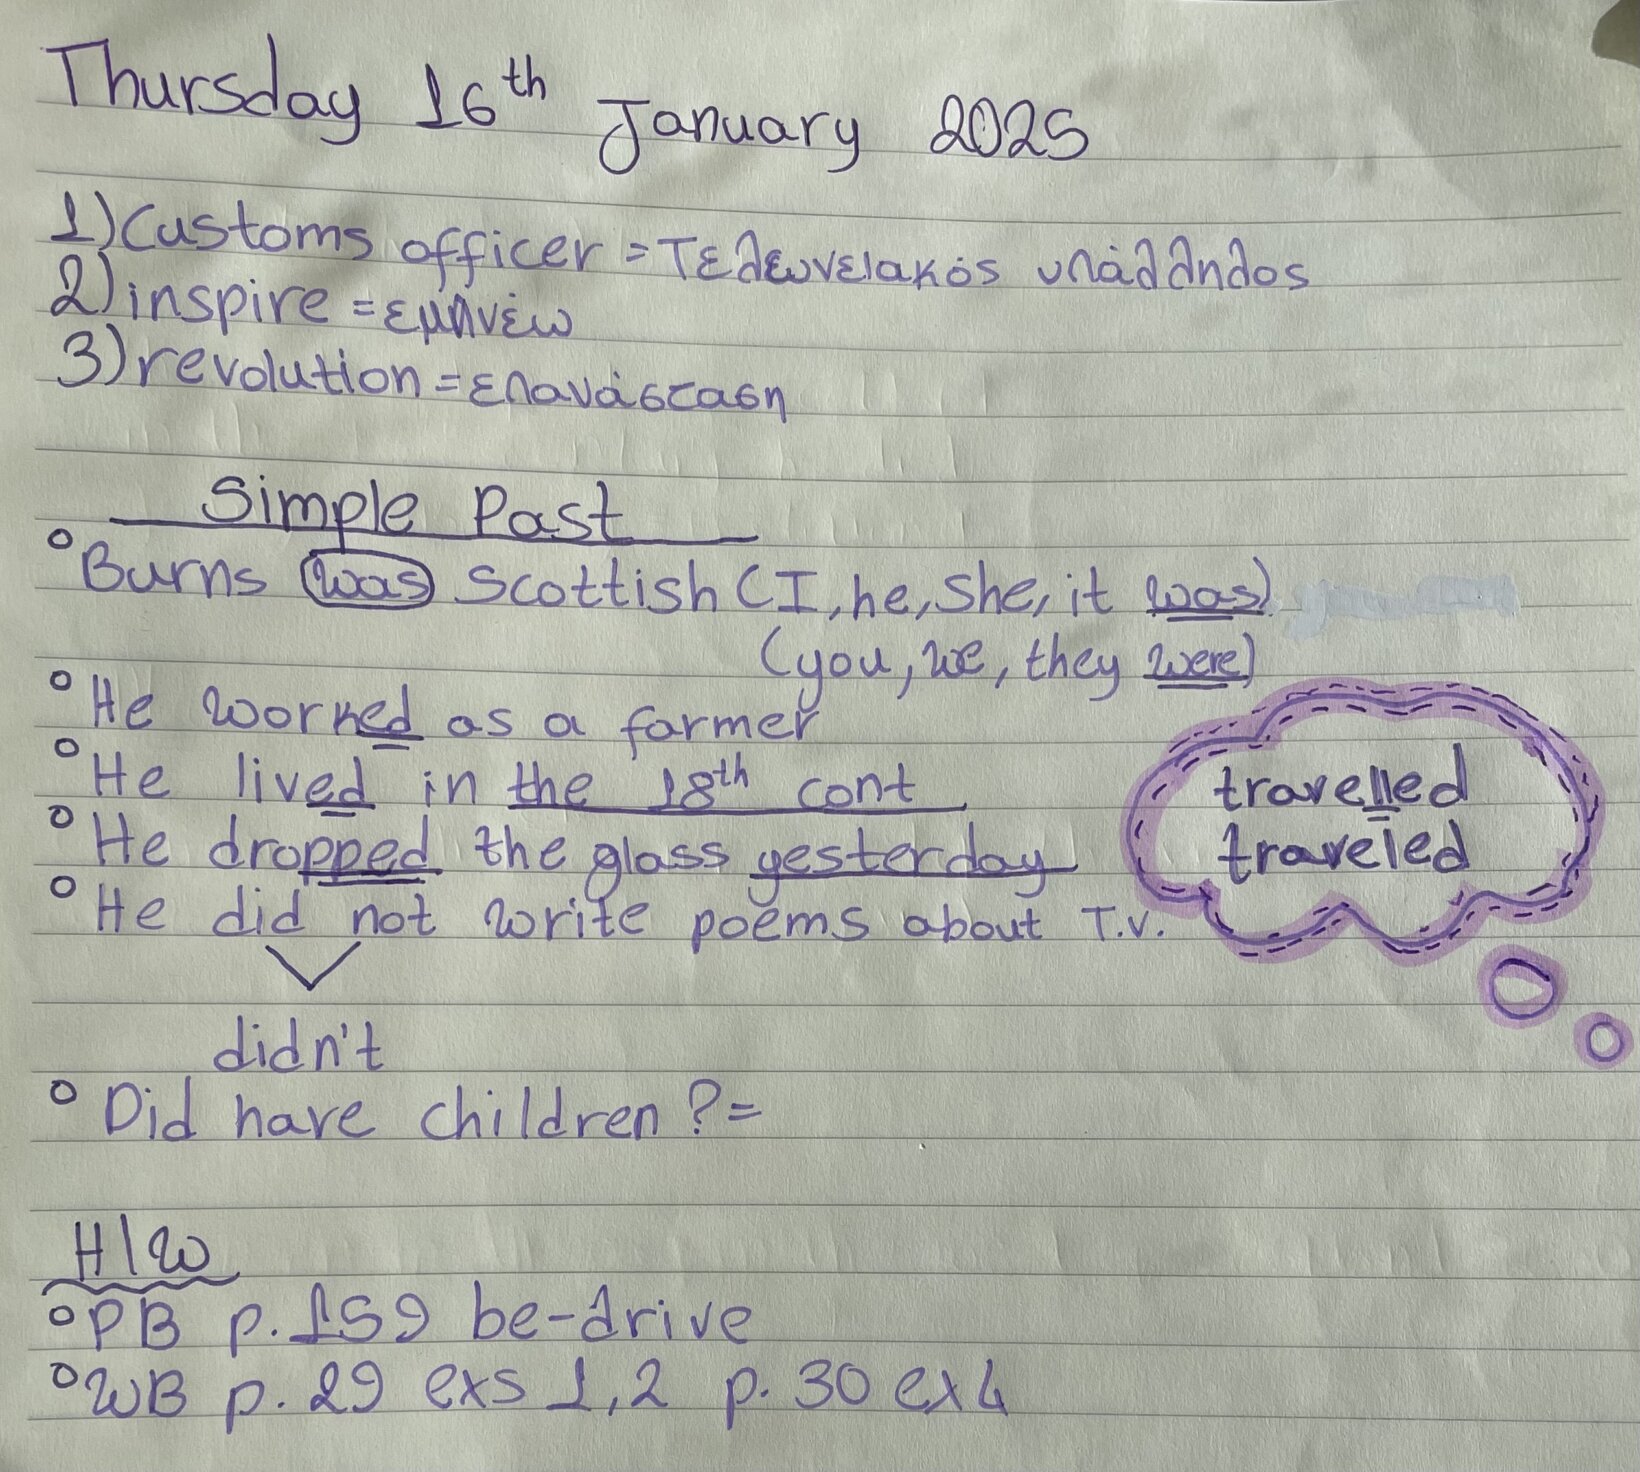 Thursday 16th January 2025
1) Customs officer = Τελωνειακός υπάλληλος
2) inspire = εμπνέω
3) revolution = επανάσταση
Simple Past
Burns was Scottish (I, he, She, it was)
(you, we, they were)
He worked as a farmer
He lived in the 18th cont
travelled
He dropped the glass yesterday
traveled
He did not write poems about T.V.
didn't
Did have children? =
H/W
PB p. 159 be-drive
WB p. 29 exs 1, 2 p. 30 ex 4